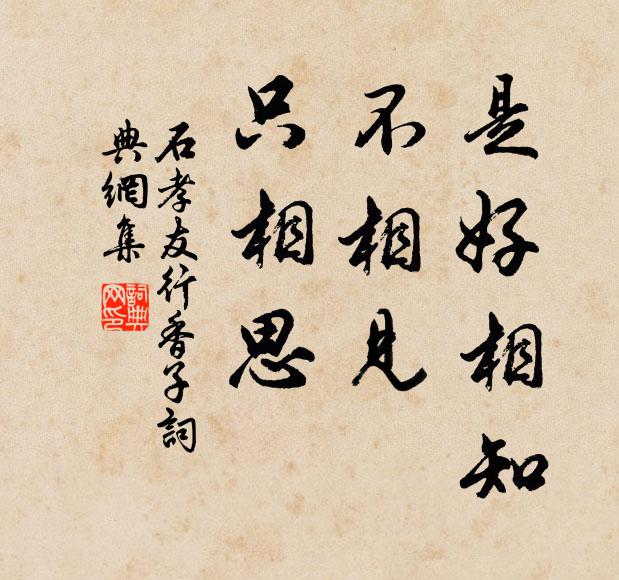 是好相知
不相見
只相思
石孝友行香子詞
典網集
詞典
网印